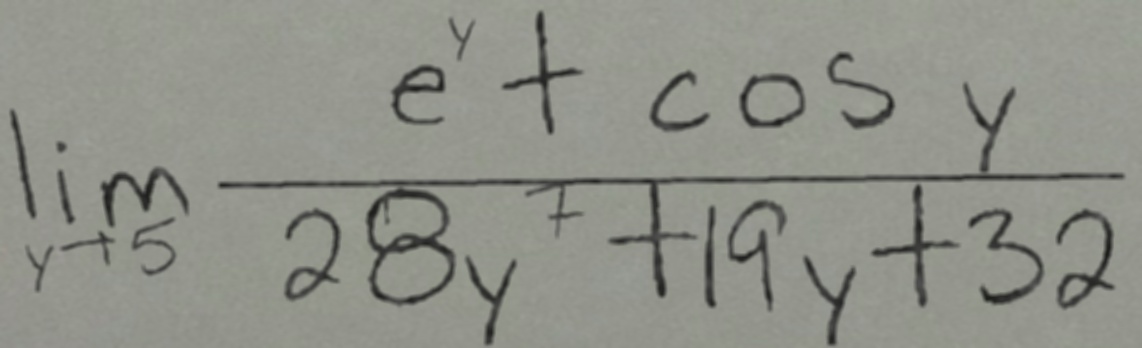 \lim_{y \to 5} \frac{e^{y} + \cos y}{28y^{7} + 19y + 32}